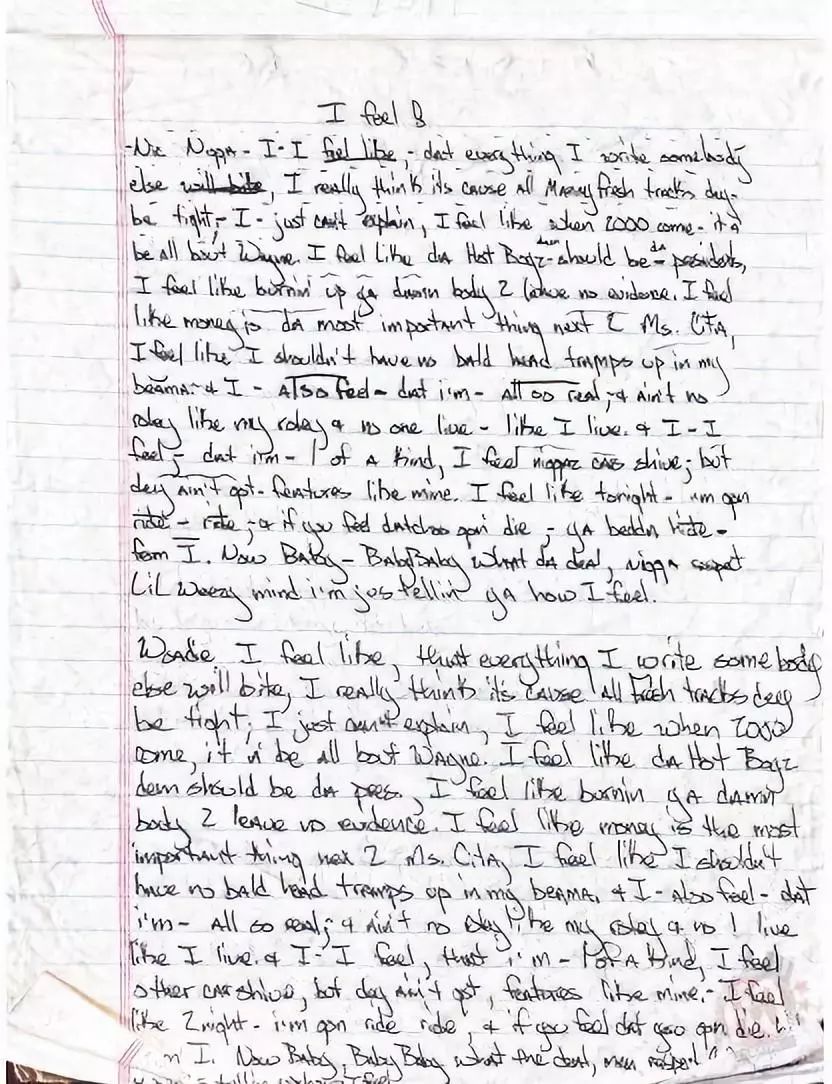 I feel
I - I feel like, - dat everything I write somebody
else will bite, I really think its cause all Mannyfresh tracks dey
be tight, - I - just can't explain, I feel like when 2000 come - it a
be all bout Wayne. I feel like da Hot Boyz dem should be da presidents,
I feel like burnin' up ya damn body 2 leave no evidence. I feel
like money is da most important thing next 2 Ms. Cita,
I feel like I shouldn't have no bald head tramps up in my
beama. & I - Also feel - dat i'm - All so real, & Ain't no
roley like my roley & no one live - like I live. & I - I
feel, - dat i'm - 1 of A kind, I feel niggaz can shine, but
dey Ain't got - features like mine. I feel like tonight - i'm gon
ride - ride, & if you feel datchoo gon' die, - ya bedda hide -
from I. Now Baby - BabyBaby What da deal, nigga respect
Lil Weezy mind i'm jus tellin ya how I feel.
Woadie I feel like, that everything I write somebody
else will bite, I really think it's cause All fresh tracks dey
be tight, I just can't explain, I feel like when 2000
come, it a be all bout Wayne. I feel like da Hot Boyz
dem should be da pres., I feel like burnin ya damn
body 2 leave no evidence. I feel like money is the most
important thing nex 2 Ms. Cita, I feel like I shouldn't
have no bald head tramps up in my beama. & I - Also feel - dat
i'm - All so real, & Ain't no roley like my roley & no 1 live
like I live. & I - I feel, that i'm - 1 of A kind, I feel
other can shine, but dey Ain't got, features like mine. - I feel
like 2night - i'm gon ride ride, & if you feel dat you gon die.
I. Now Baby, BabyBaby what the deal, man respect
tellin I feel